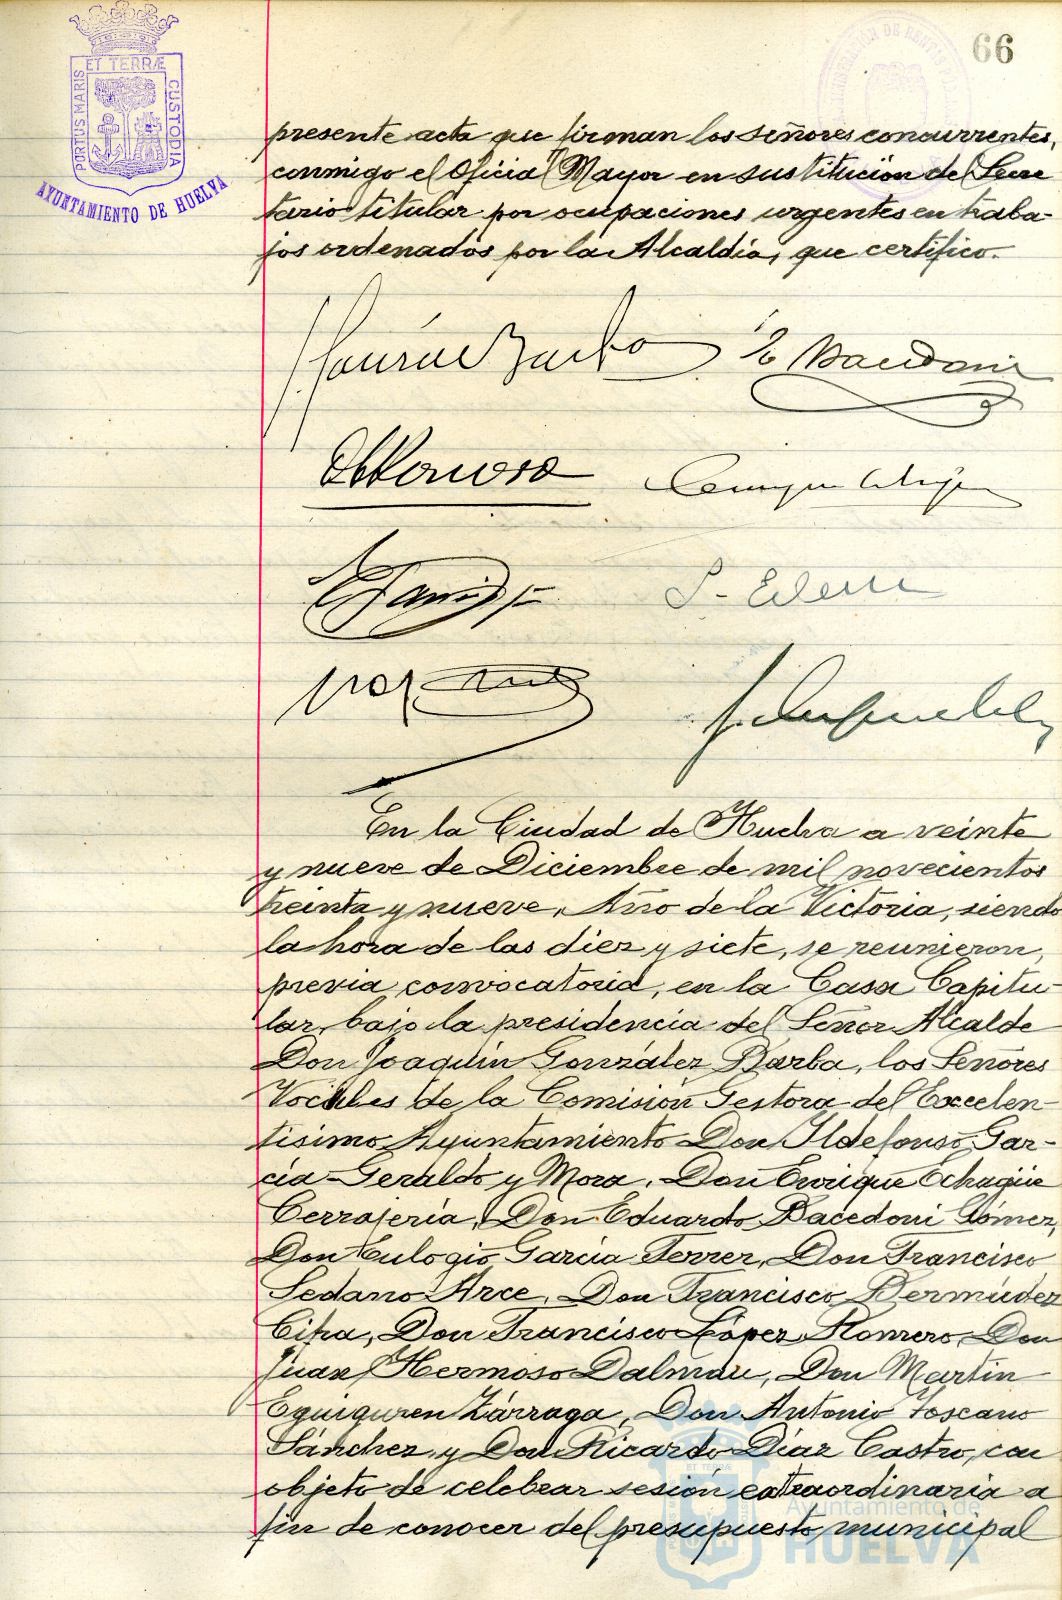 66
PORTUS MARIS
ET TERRÆ
CUSTODIA
AYUNTAMIENTO DE HUELVA
presente acta que firman los señores concurrentes,
conmigo el Oficial Mayor en sustitución del Secre
tario titular por ocupaciones urgentes en traba-
jos ordenados por la Alcaldía, que certifico.
En la Ciudad de Huelva a veinte
y nueve de Diciembre de mil novecientos
treinta y nueve, Año de la Victoria, siendo
la hora de las diez y siete, se reunieron,
previa convocatoria, en la Casa Capitu-
lar, bajo la presidencia del Señor Alcalde
Don Joaquín González Barba, los Señores
Vocales de la Comisión Gestora del Excelen-
tísimo Ayuntamiento Don Ildefonso Gar-
cía-Geraldo y Mora, Don Enrique Echagüe
Cerrajería, Don Eduardo Bacedoni Gómez,
Don Eulogio García Ferrer, Don Francisco
Sedano Arce, Don Francisco Bermúdez
Cifra, Don Francisco López Romero, Don
Juan Hermoso Dalmau, Don Martín
Eguiguren Zárraga, Don Antonio Toscano
Sánchez y Don Ricardo Díaz Castro, con
objeto de celebrar sesión extraordinaria a
fin de conocer del presupuesto municipal
Ayuntamiento de
HUELVA